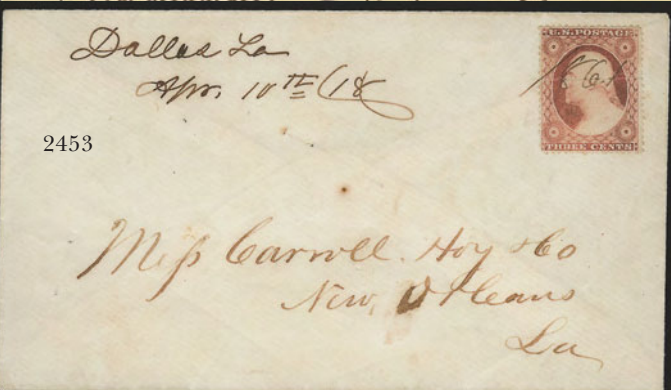 Dallas La
Apr. 10TH /18
1861
U.S. POSTAGE
THREE CENTS
2453
Mess Carroll. Hoy & Co
New Orleans
La